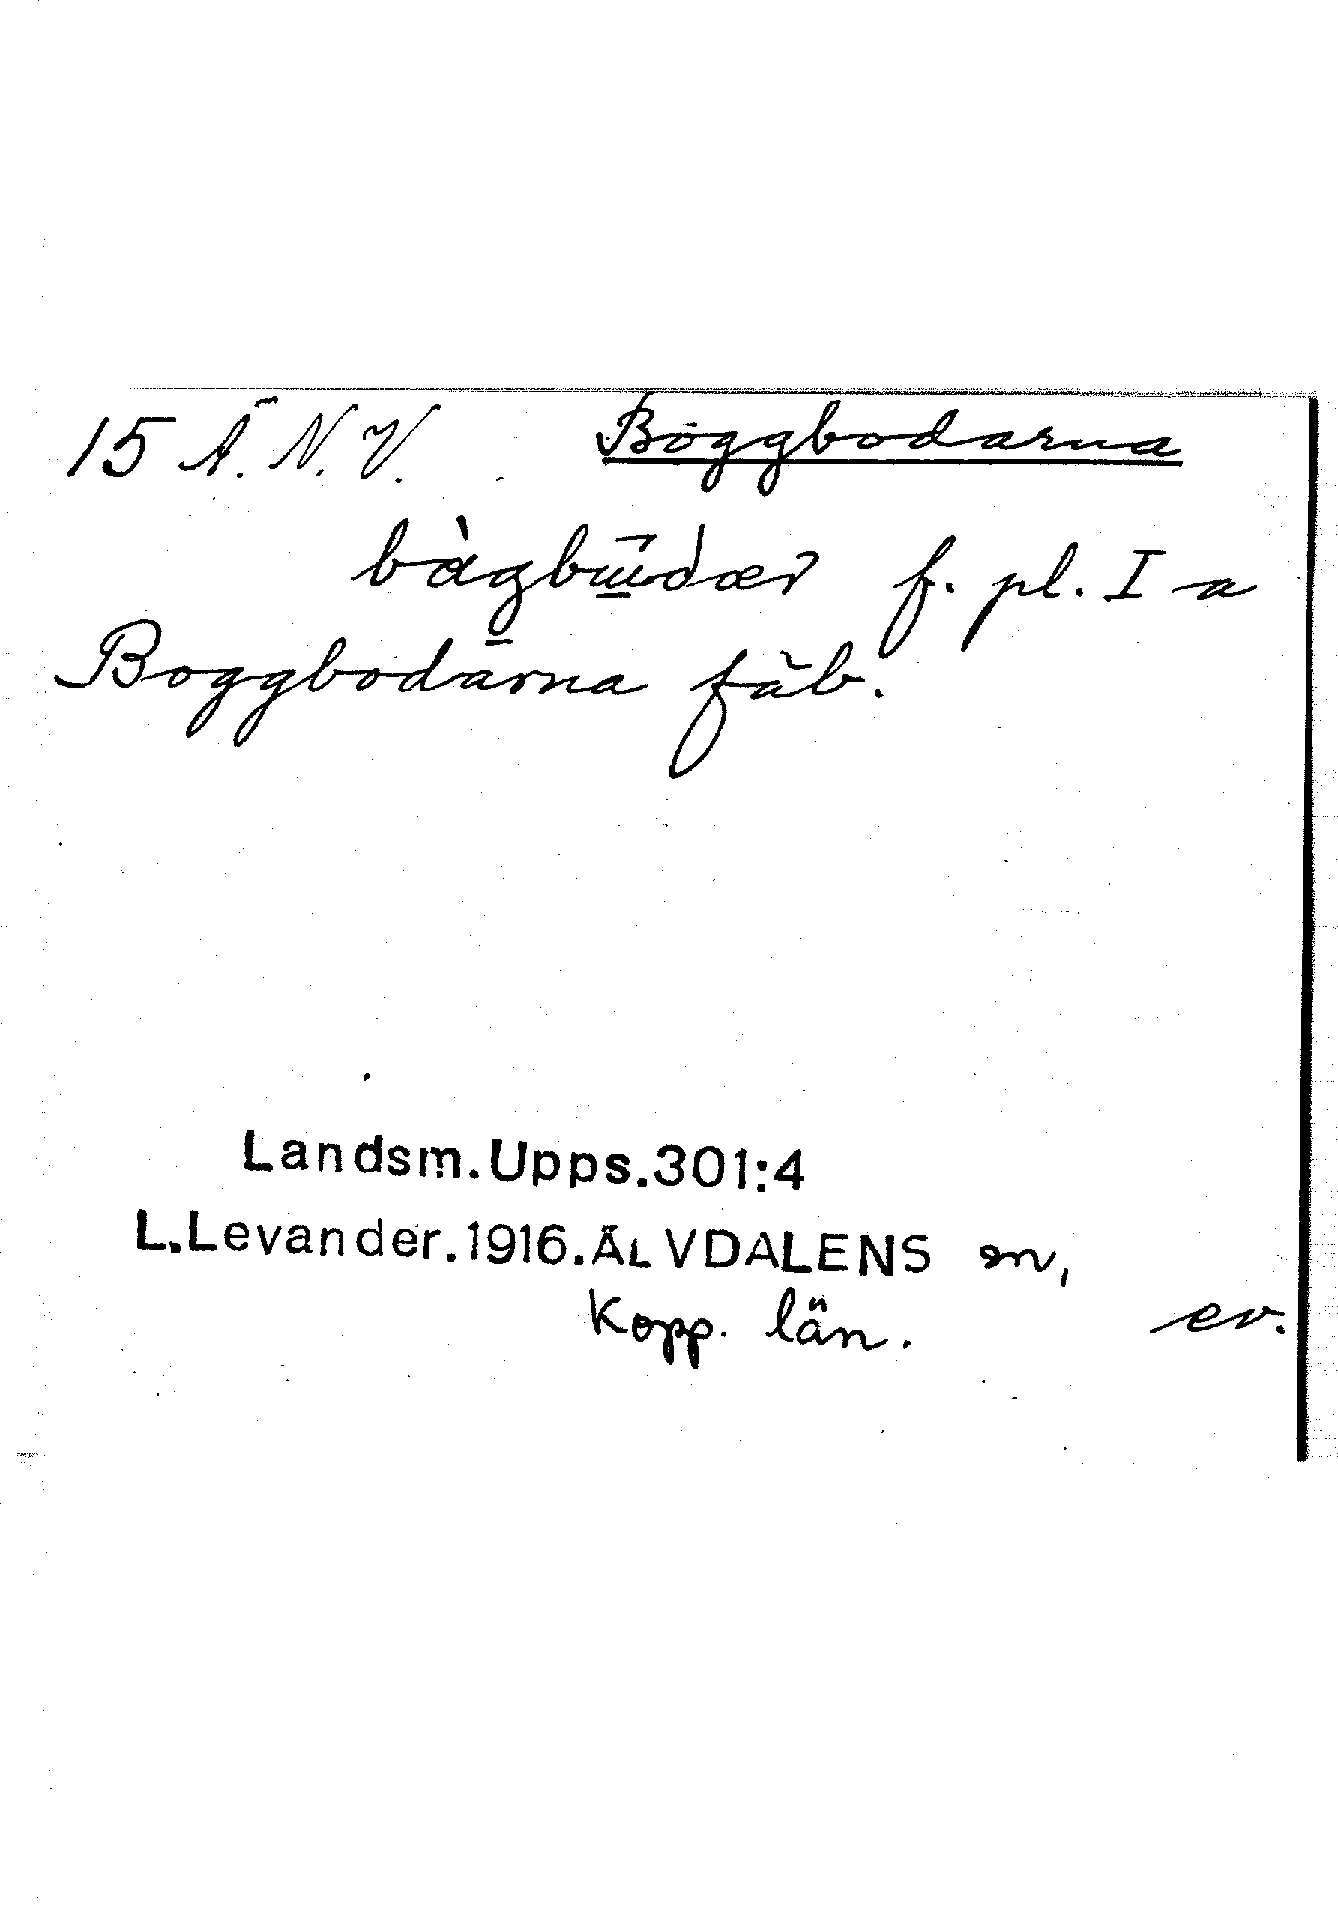 15 Ä. N. V. Boggbodarna
bàgbūdær f. pl. I a
Boggbodarna fäb.
Landsm.Upps.301:4
L.Levander.1916.ÄLVDALENS sn,
Kopp. län. ev.